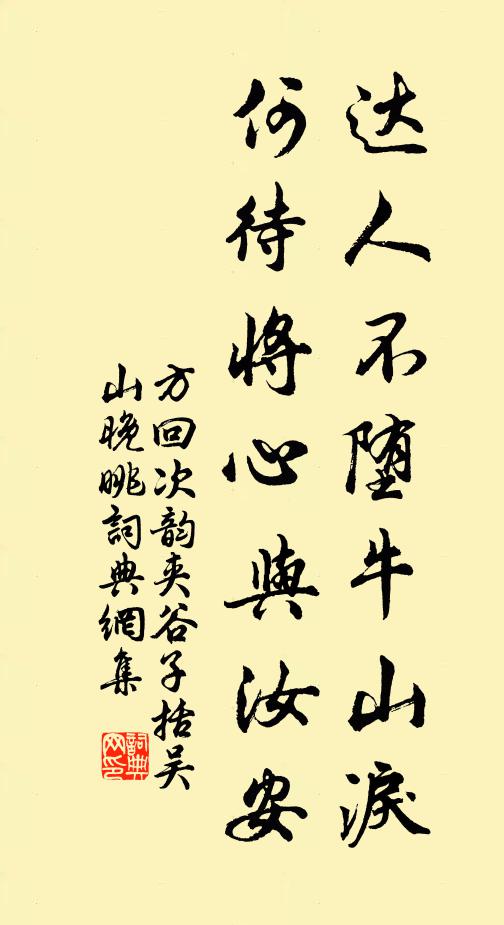 达人不堕牛山淚
何待將心與汝安
方回次韵夹谷子括吴
山晚眺詞典網集
詞典网印